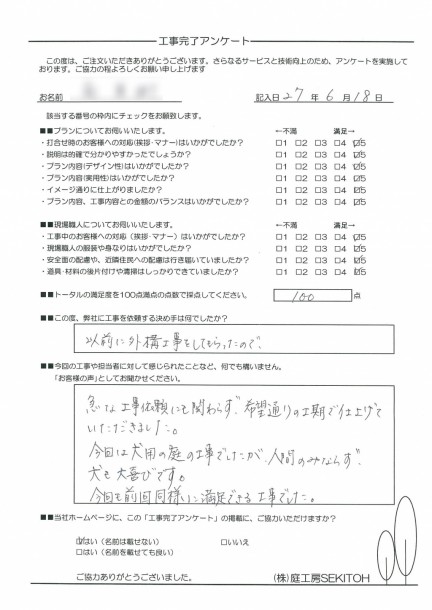 工事完了アンケート
この度は、ご注文いただきありがとうございます。さらなるサービスと技術向上のため、アンケートを実施して
おります。ご協力の程よろしくお願い申し上げます
お名前
記入日 27 年 6 月 18 日
該当する番号の枠内にチェックをお願致します。
■■プランについてお伺いいたします。 ←不満 満足→
・打合せ時のお客様への対応(挨拶・マナー)はいかがでしたか? □1 □2 □3 □4 ☑5
・説明は的確で分かりやすかったでしょうか? □1 □2 □3 □4 ☑5
・プラン内容(デザイン性)はいかがでしたか? □1 □2 □3 □4 ☑5
・プラン内容(実用性)はいかがでしたか? □1 □2 □3 □4 ☑5
・イメージ通りに仕上がりましたか? □1 □2 □3 □4 ☑5
・プラン内容、工事内容との金額のバランスはいかがでしたか? □1 □2 □3 □4 ☑5
■■現場職人についてお伺いいたします。 ←不満 満足→
・工事中のお客様への対応(挨拶・マナー)はいかがでしたか? □1 □2 □3 □4 ☑5
・現場職人の服装や身なりはいかがでしたか? □1 □2 □3 □4 ☑5
・安全面の配慮や、近隣住民への配慮は行き届いていましたか? □1 □2 □3 □4 ☑5
・道具・材料の後片付けや清掃はしっかりできていましたか? □1 □2 □3 □4 ☑5
■■トータルの満足度を100点満点の点数で採点してください。 100 点
■■この度、弊社に工事を依頼する決め手は何でしたか?
以前に外構工事をしてもらったので、
■■今回の工事や担当者に対して感じられたことなど、何でも構いません。
「お客様の声」としてお聞かせください。
急な工事依頼にも関わらず、希望通りの工期で仕上げて
いただきました。
今回は犬用の庭の工事でしたが、人間のみならず、
犬も大喜びです。
今回も前回同様に満足できる工事でした。
■■当社ホームページに、この「工事完了アンケート」の掲載に、ご協力いただけますか?
☑はい(名前は載せない) □いいえ
□はい(名前を載せても良い)
ご協力ありがとうございました。 (株)庭工房SEKITOH